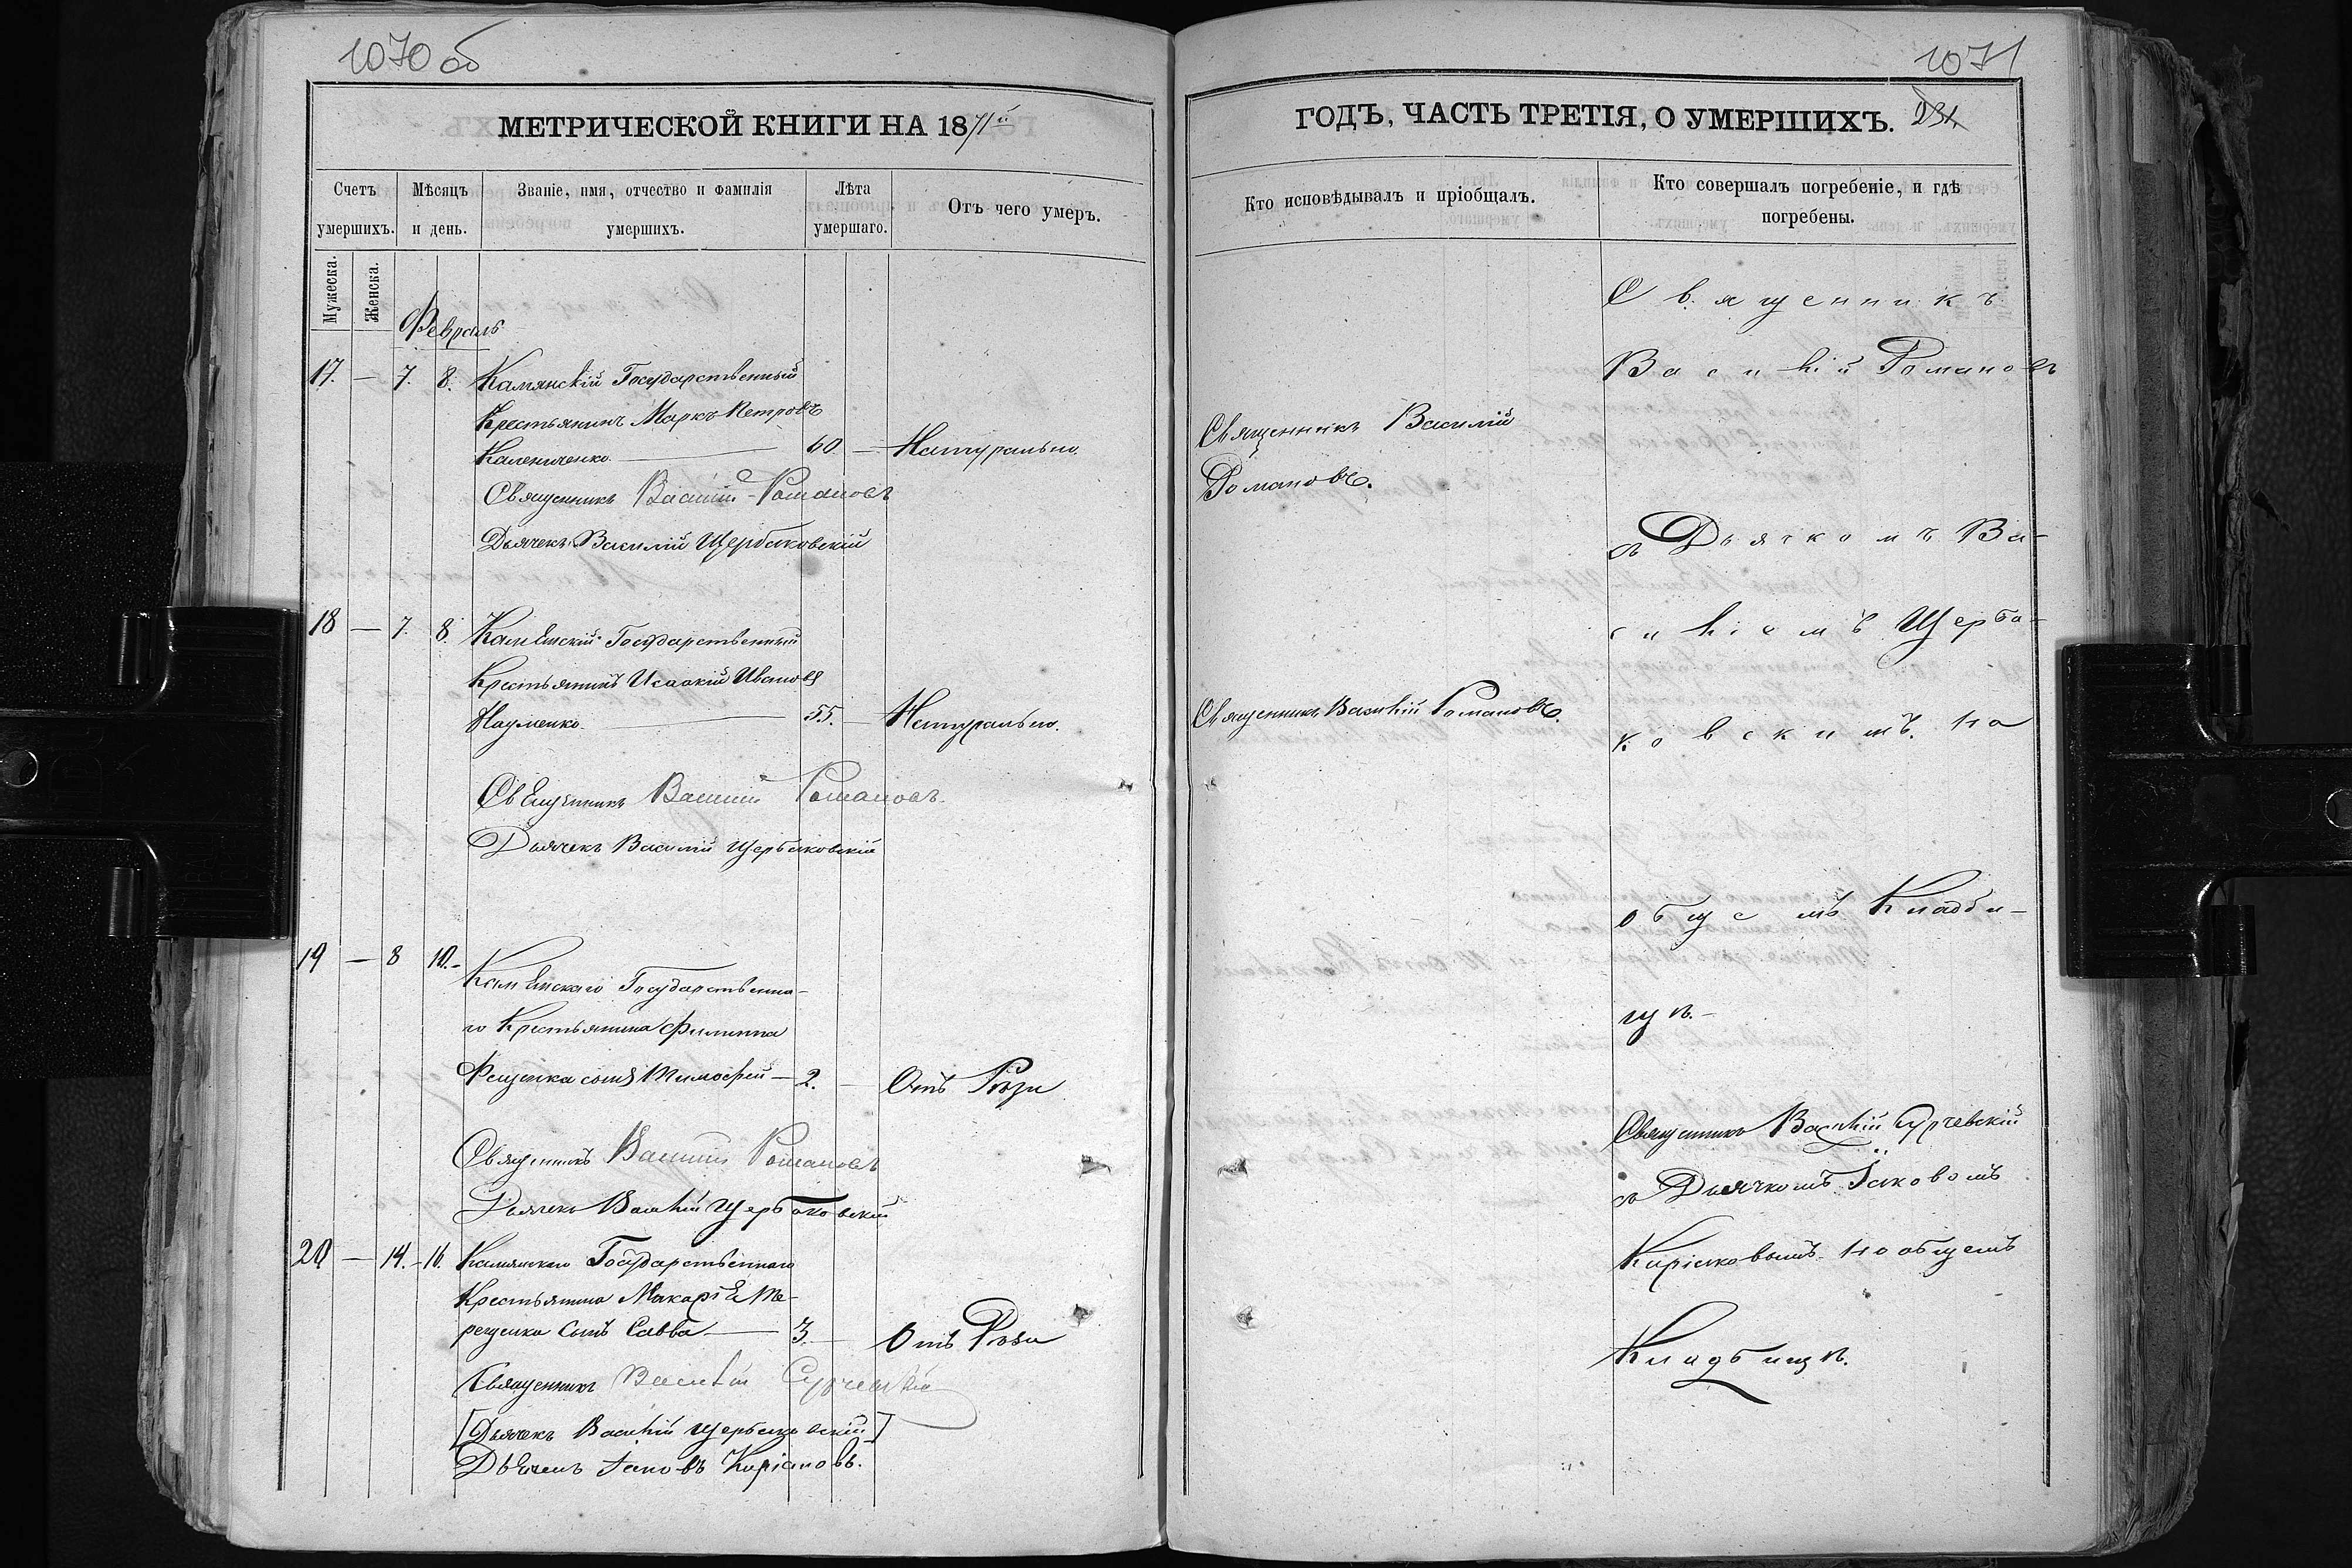 1070 об
МЕТРИЧЕСКОЙ КНИГИ НА 1871й
Счетъ умершихъ.
Мѣсяцъ и день.
Званіе, имя, отчество и фамилія умершихъ.
Лѣта умершаго.
Отъ чего умеръ.
Мужеска.
Женска.
Февраль
17. — 7. 8. Камянскій Государственный
Крестьянинъ Марко Петровъ
Калениченко. — 60 — Натурально.
Священникъ Василій Романовъ
Дьячекъ Василій Щербаковскій
18 — 7. 8. Камянскій Государственный
Крестьянинъ Исаакій Ивановъ
Науменко. — 55. — Натурально.
Священникъ Василій Романовъ.
Дьячекъ Василій Щербаковскій
19 — 8 10. — Камянскаго Государственна-
го Крестьянина Филиппа
Фещенка сынъ Тимофей — 2. — Отъ Рѣзи
Священникъ Василій Романовъ
Дьячекъ Василій Щербаковскій
20 — 14. — 16. Камянскаго Государственнаго
Крестьянина Макарія Те-
рещенка Сынъ Савва — 3. — Отъ Рѣзи
Священникъ Василій
[Дьячекъ Василій Щербаковскій]
Дьячекъ Іаковъ
1071
ГОДЪ, ЧАСТЬ ТРЕТІЯ, О УМЕРШИХЪ.
Кто исповѣдывалъ и пріобщалъ.
Кто совершалъ погребеніе, и гдѣ погребены.
Священникъ Василій
Романовъ.
Священникъ Василій Романовъ.
Священникъ
Василій Романовъ
съ Дьячкомъ Ва-
силіемъ Щерба-
ковскимъ. на
общемъ Кладби-
щѣ. —
Священникъ Василій
съ Дьячкомъ Іаковомъ
на общемъ
Кладбищѣ.